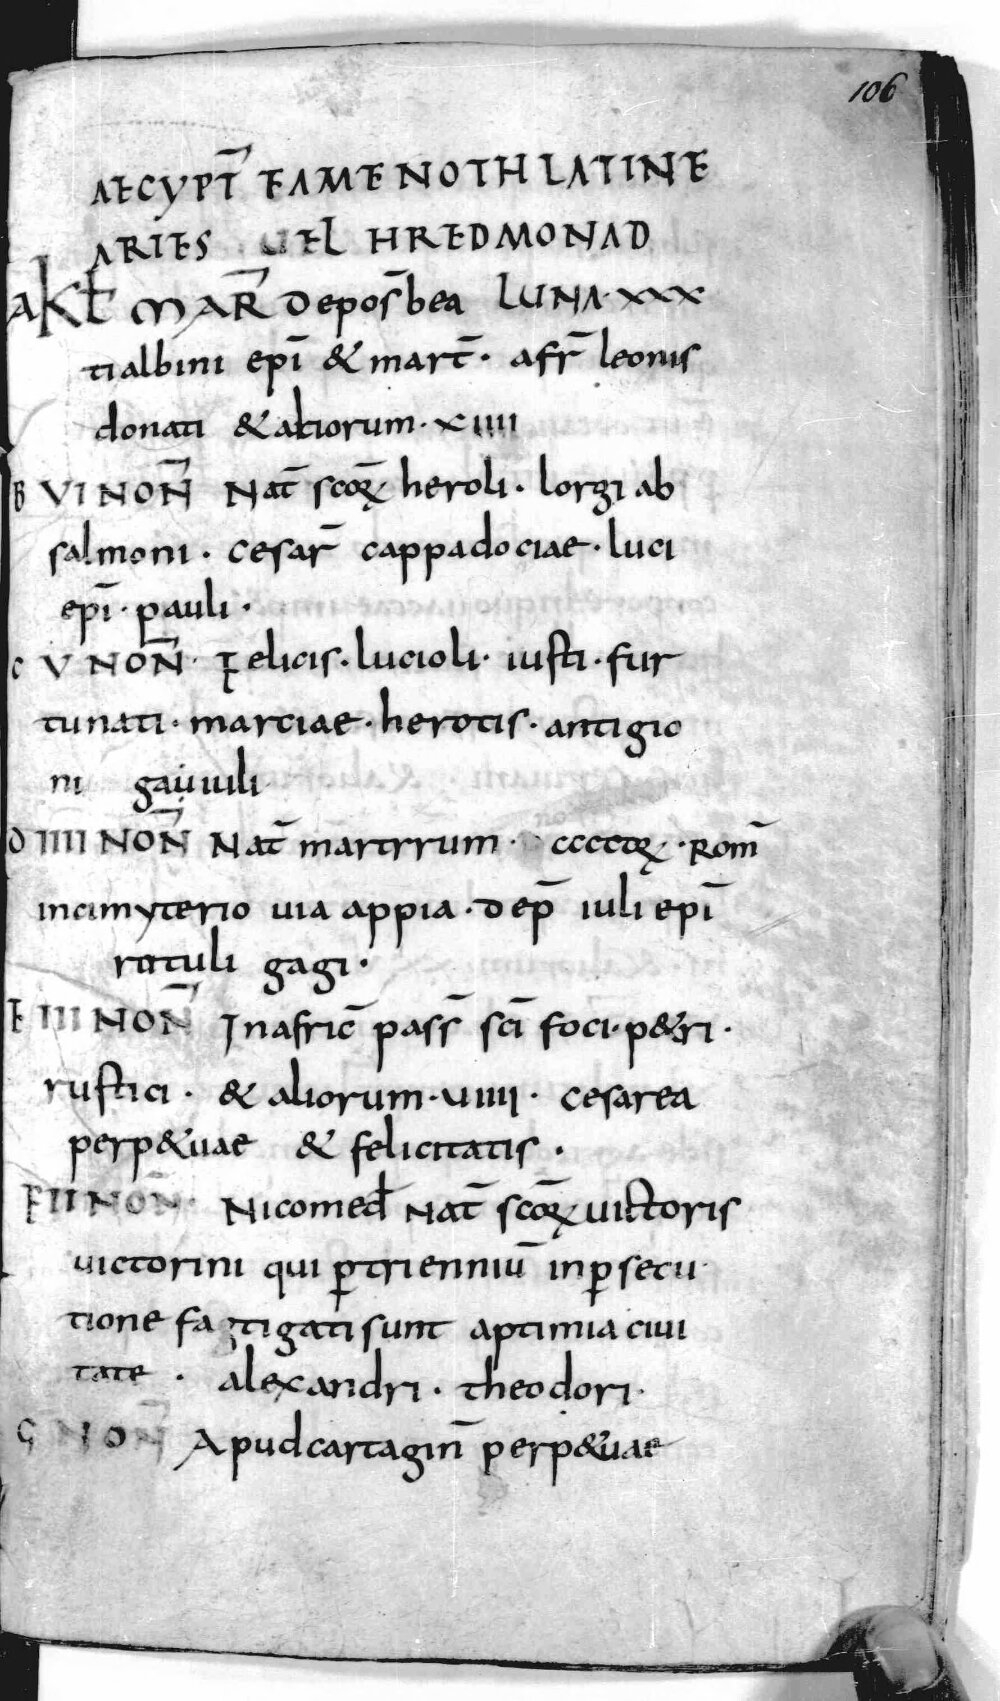 106
AEGYPT̄ FAMENOTH LATINE
ARIES UEL HREDMONAD
A KƗ MAR̄ Depos̄ bea LUNA·XXX
ti albini ep̄i & mart̄· afr̄ leonis
donati & aliorum·XIIII
B VI NON̄ Nat̄ scoꝝ̄ heroli· lorgi ab
salmoni· cesar̄ cappadociae· luci
ep̄i· pauli·
C V NON̄· Felicis· lucioli· iusti· fur
tunati· marciae· herotis· antigio
ni gaii iuli
D IIII NON̄ Nat̄ martrrum· ccccctꝝ· Rom̄
incimyterio uia appia· dep̄ iuli ep̄i
rotuli gagi·
E III NON̄ In afric̄ pass̄ sc̄i foci· p&ri·
rustici· & aliorum·VIIII· cesarea
perp&uae & felicitatis·
F II NON̄· Nicomed̄ Nat̄ scoꝝ̄ uictoris
uictorini qui ꝑtrienniū inꝑsecu
tione fatigati sunt aptimia ciui
tate· alexandri· theodori·
G NON̄ Apud cartagin̄ perp&uae